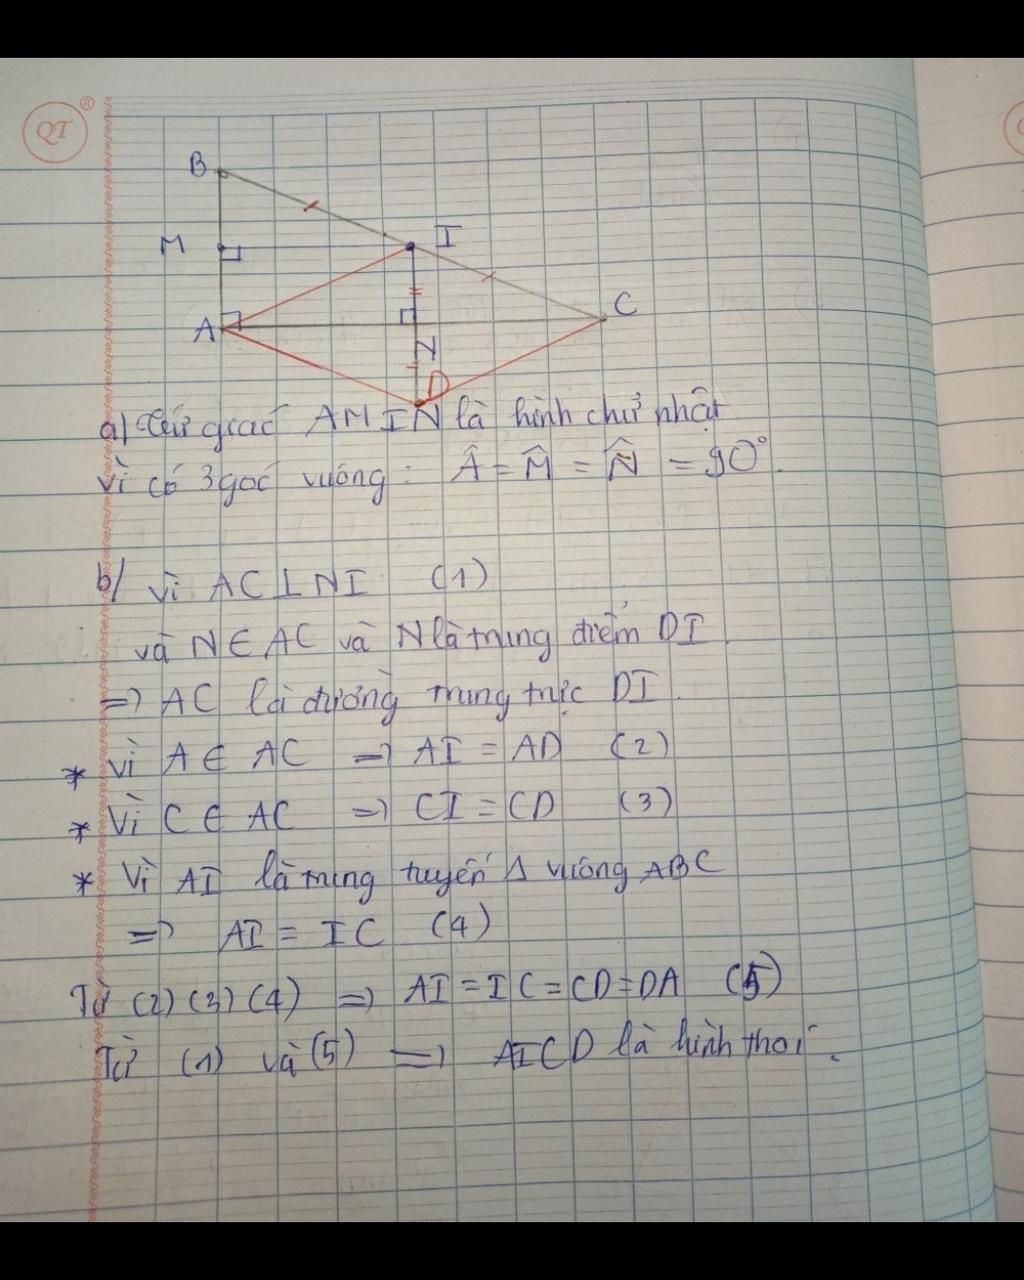 QT ®
B
M
I
A
C
N
D
a) Tứ giác AMIN là hình chữ nhật
vì có 3 góc vuông : Â = M̂ = N̂ = 90°.
b) vì AC ⊥ NI (1)
và N ∈ AC và N là trung điểm DI.
=> AC là đường trung trực DI.
* Vì A ∈ AC => AI = AD (2)
* Vì C ∈ AC => CI = CD (3)
* Vì AI là trung tuyến Δ vuông ABC
=> AI = IC (4)
Từ (2) (3) (4) => AI = IC = CD = DA (5)
Từ (1) và (5) => AICD là hình thoi.